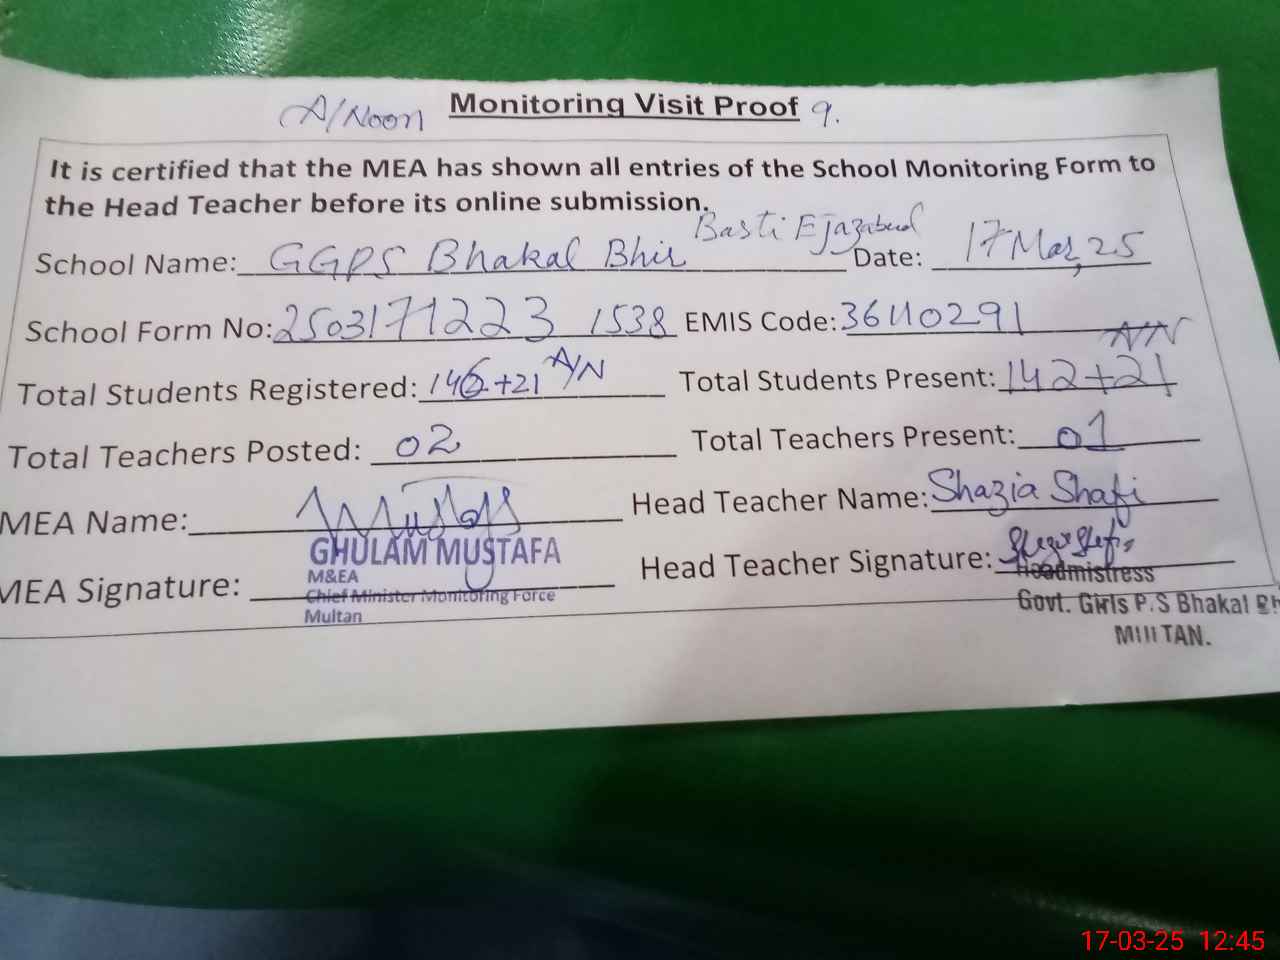 A/Noon Monitoring Visit Proof 9.
It is certified that the MEA has shown all entries of the School Monitoring Form to
the Head Teacher before its online submission.
Basti Ejazabad
School Name: GGPS Bhakal Bhir Date: 17 Mar, 25
School Form No: 2503171223 1538 EMIS Code: 36110291
A/N A/N
Total Students Registered: 146+21 Total Students Present: 142+21
Total Teachers Posted: 02 Total Teachers Present: 01
MEA Name: Head Teacher Name: Shazia Shafi
GHULAM MUSTAFA
MEA Signature: Head Teacher Signature:
M&EA
Chief Minister Monitoring Force
Multan
Headmistress
Govt. Girls P.S Bhakal Bh
MULTAN.
17-03-25 12:45